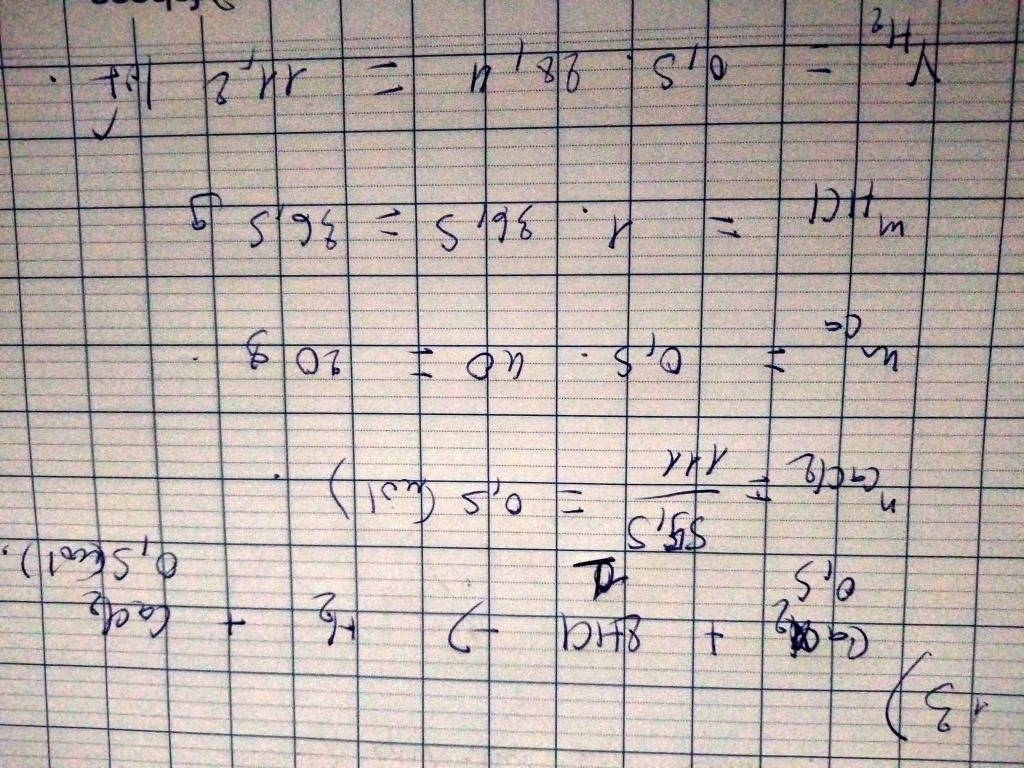 3)
Ca + 2HCl → H2 + CaCl2
0,5 1 0,5 (mol).
n CaCl2 = 55,5 / 111 = 0,5 (mol).
m Ca = 0,5 . 40 = 20 g.
m HCl = 1 . 36,5 = 36,5 g
V H2 = 0,5 . 22,4 = 11,2 lít.